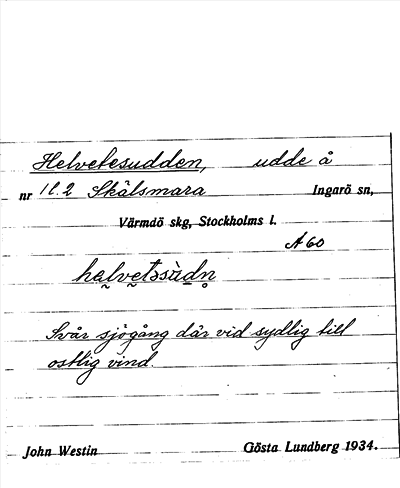 Helvetesudden, udde å
nr 1l.2 Skälsmara Ingarö sn,
Värmdö skg, Stockholms l.
A 60
hęlvętəsùdn̥
Svår sjögång där vid sydlig till
ostlig vind.
John Westin Gösta Lundberg 1934.